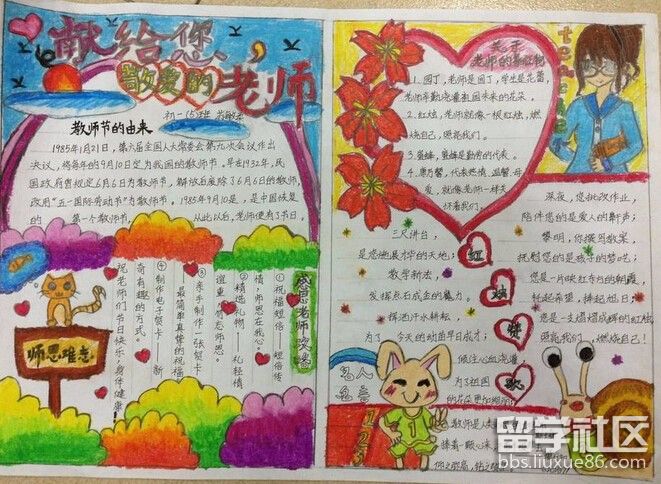 献给您，
敬爱的老师
初一(5)班
教师节的由来
1985年1月21日，第六届全国人大常委会第九次会议作出
决议，将每年的9月10日定为我国的教师节。早在1932年，民
国政府曾规定6月6日为教师节，解放后废除了6月6日的教师节，
改用"五一国际劳动节"为教师节。1985年9月10日，是中国恢复
的 第一个教师节， 从此以后，老师便有了节日。
感恩老师
①祝福短信——短信传
情，师恩在我心。
②精选礼物 礼轻情
谊重
③亲手制作一张贺卡——
最简单真挚的祝福
④制作电子贺卡——新
奇有趣的方式。
祝老师们节日快乐，身体健康！
师恩难忘
关于
老师的
teacher
1.园丁，老师是园丁，学生是花蕾，
老师辛勤浇灌祖国未来的花朵。
2.红烛，老师就像一根红烛，燃
烧自己，照亮我们。
3.蜜蜂，蜜蜂是勤劳的代表。
4.康乃馨，代表热情、温馨、母
爱，就像老师一样关
怀着我们。
红烛颂歌
三尺讲台，
是您施展才华的天地；
教学新法，
发挥点石成金的魔力。
挥洒汗水耕耘，
为了 今天的幼苗早日成才；
倾注心血浇灌
为了祖国
的花朵更加绚丽
深夜，您批改作业，
陪伴您的是爱人的鼾声；
黎明，你撰写教案，
抚慰您的是孩子的梦呓；
您是一片映红东方的朝霞，
托起希望，捧起旭日；
您是一支熠熠成辉的红烛，
照亮我们，燃烧自己！
名人
名言
1 2 3
教师是
捧着一颗心来，
留学社区
bbs.liuxue86.com